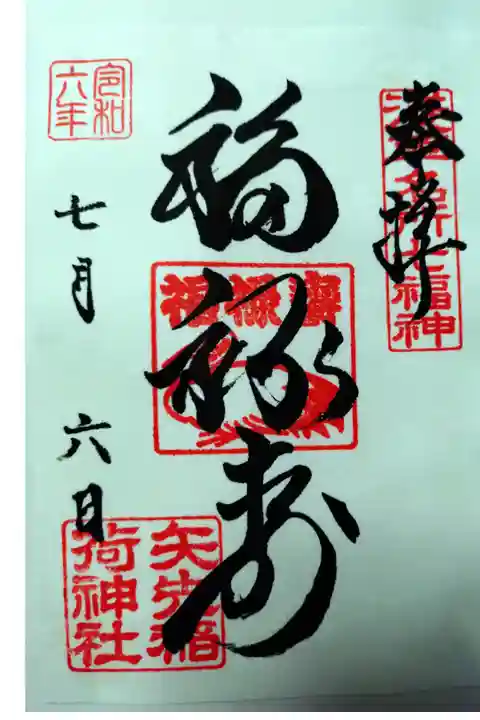 奉拝
浅草名所七福神
福禄寿
福禄寿
矢先稲荷神社
令和六年
七月六日